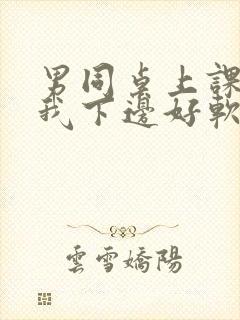 男同桌上課
我下邊好軟
雲雪嬌陽